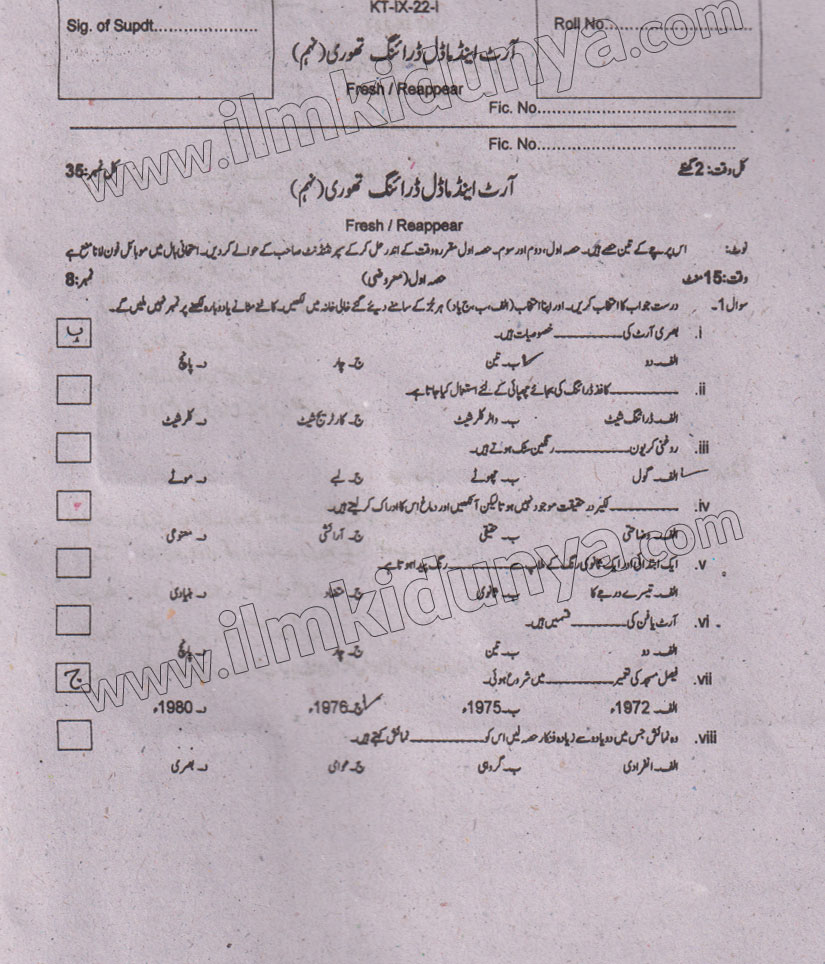 KT-IX-22-I
Sig. of Supdt.....................
Roll No.............................
آرٹ اینڈ ماڈل ڈرائنگ تھوری (نہم)
Fresh / Reappear
Fic. No........................................
Fic. No........................................
کل وقت: 2 گھنٹے
کل نمبر: 35
آرٹ اینڈ ماڈل ڈرائنگ تھوری (نہم)
Fresh / Reappear
نوٹ: اس پرچے کے تین حصے ہیں۔ حصہ اول، دوم اور سوم۔ حصہ اول مقررہ وقت کے اندر حل کر کے سپرنٹنڈنٹ صاحب کے حوالے کر دیں۔ امتحانی ہال میں موبائل فون لانا منع ہے
وقت: 15 منٹ حصہ اول (معروضی) نمبر: 8
سوال 1۔ درست جواب کا انتخاب کریں۔ اور اپنا انتخاب (الف، ب، ج یا د) ہر جز کے سامنے دیئے گئے خالی خانہ میں لکھیں۔ کاٹنے مٹانے یا دوبارہ لکھنے پر نمبر نہیں ملیں گے۔
i. بصری آرٹ کی ـــــــــــ خصوصیات ہیں۔ ب
الف۔ دو ب۔ تین ج۔ چار د۔ پانچ
ii. ـــــــــــ کاغذ ڈرائنگ کی بجائے چھپائی کے لئے استعمال کیا جاتا ہے۔
الف۔ ڈرائنگ شیٹ ب۔ واٹر کلر شیٹ ج۔ کارٹریج شیٹ د۔ کلر شیٹ
iii. روغنی کریون ـــــــــــ رنگین سٹک ہوتے ہیں۔
الف۔ گول ب۔ چھوٹے ج۔ لمبے د۔ موٹے
iv. ـــــــــــ لکیر در حقیقت موجود نہیں ہوتا لیکن آنکھیں اور دماغ اس کا ادراک کر لیتے ہیں۔
الف۔ وضاحتی ب۔ حقیقی ج۔ آرائشی د۔ مصنوعی
v. ایک ابتدائی اور ایک ثانوی رنگ کے ملاپ سے ـــــــــــ رنگ پیدا ہوتا ہے۔
الف۔ تیسرے درجے کا ب۔ ثانوی ج۔ متضاد د۔ بنیادی
vi. آرٹ یا فن کی ـــــــــــ قسمیں ہیں۔
الف۔ دو ب۔ تین ج۔ چار د۔ پانچ
vii. فیصل مسجد کی تعمیر ـــــــــــ میں شروع ہوئی۔ ج
الف۔ 1972ء ب۔ 1975ء ج۔ 1976ء د۔ 1980ء
viii. وہ نمائش جس میں دو یا دو سے زیادہ فنکار حصہ لیں اس کو ـــــــــــ نمائش کہتے ہیں۔
الف۔ انفرادی ب۔ گروہی ج۔ عوامی د۔ بصری
www.ilmkidunya.com
www.ilmkidunya.com